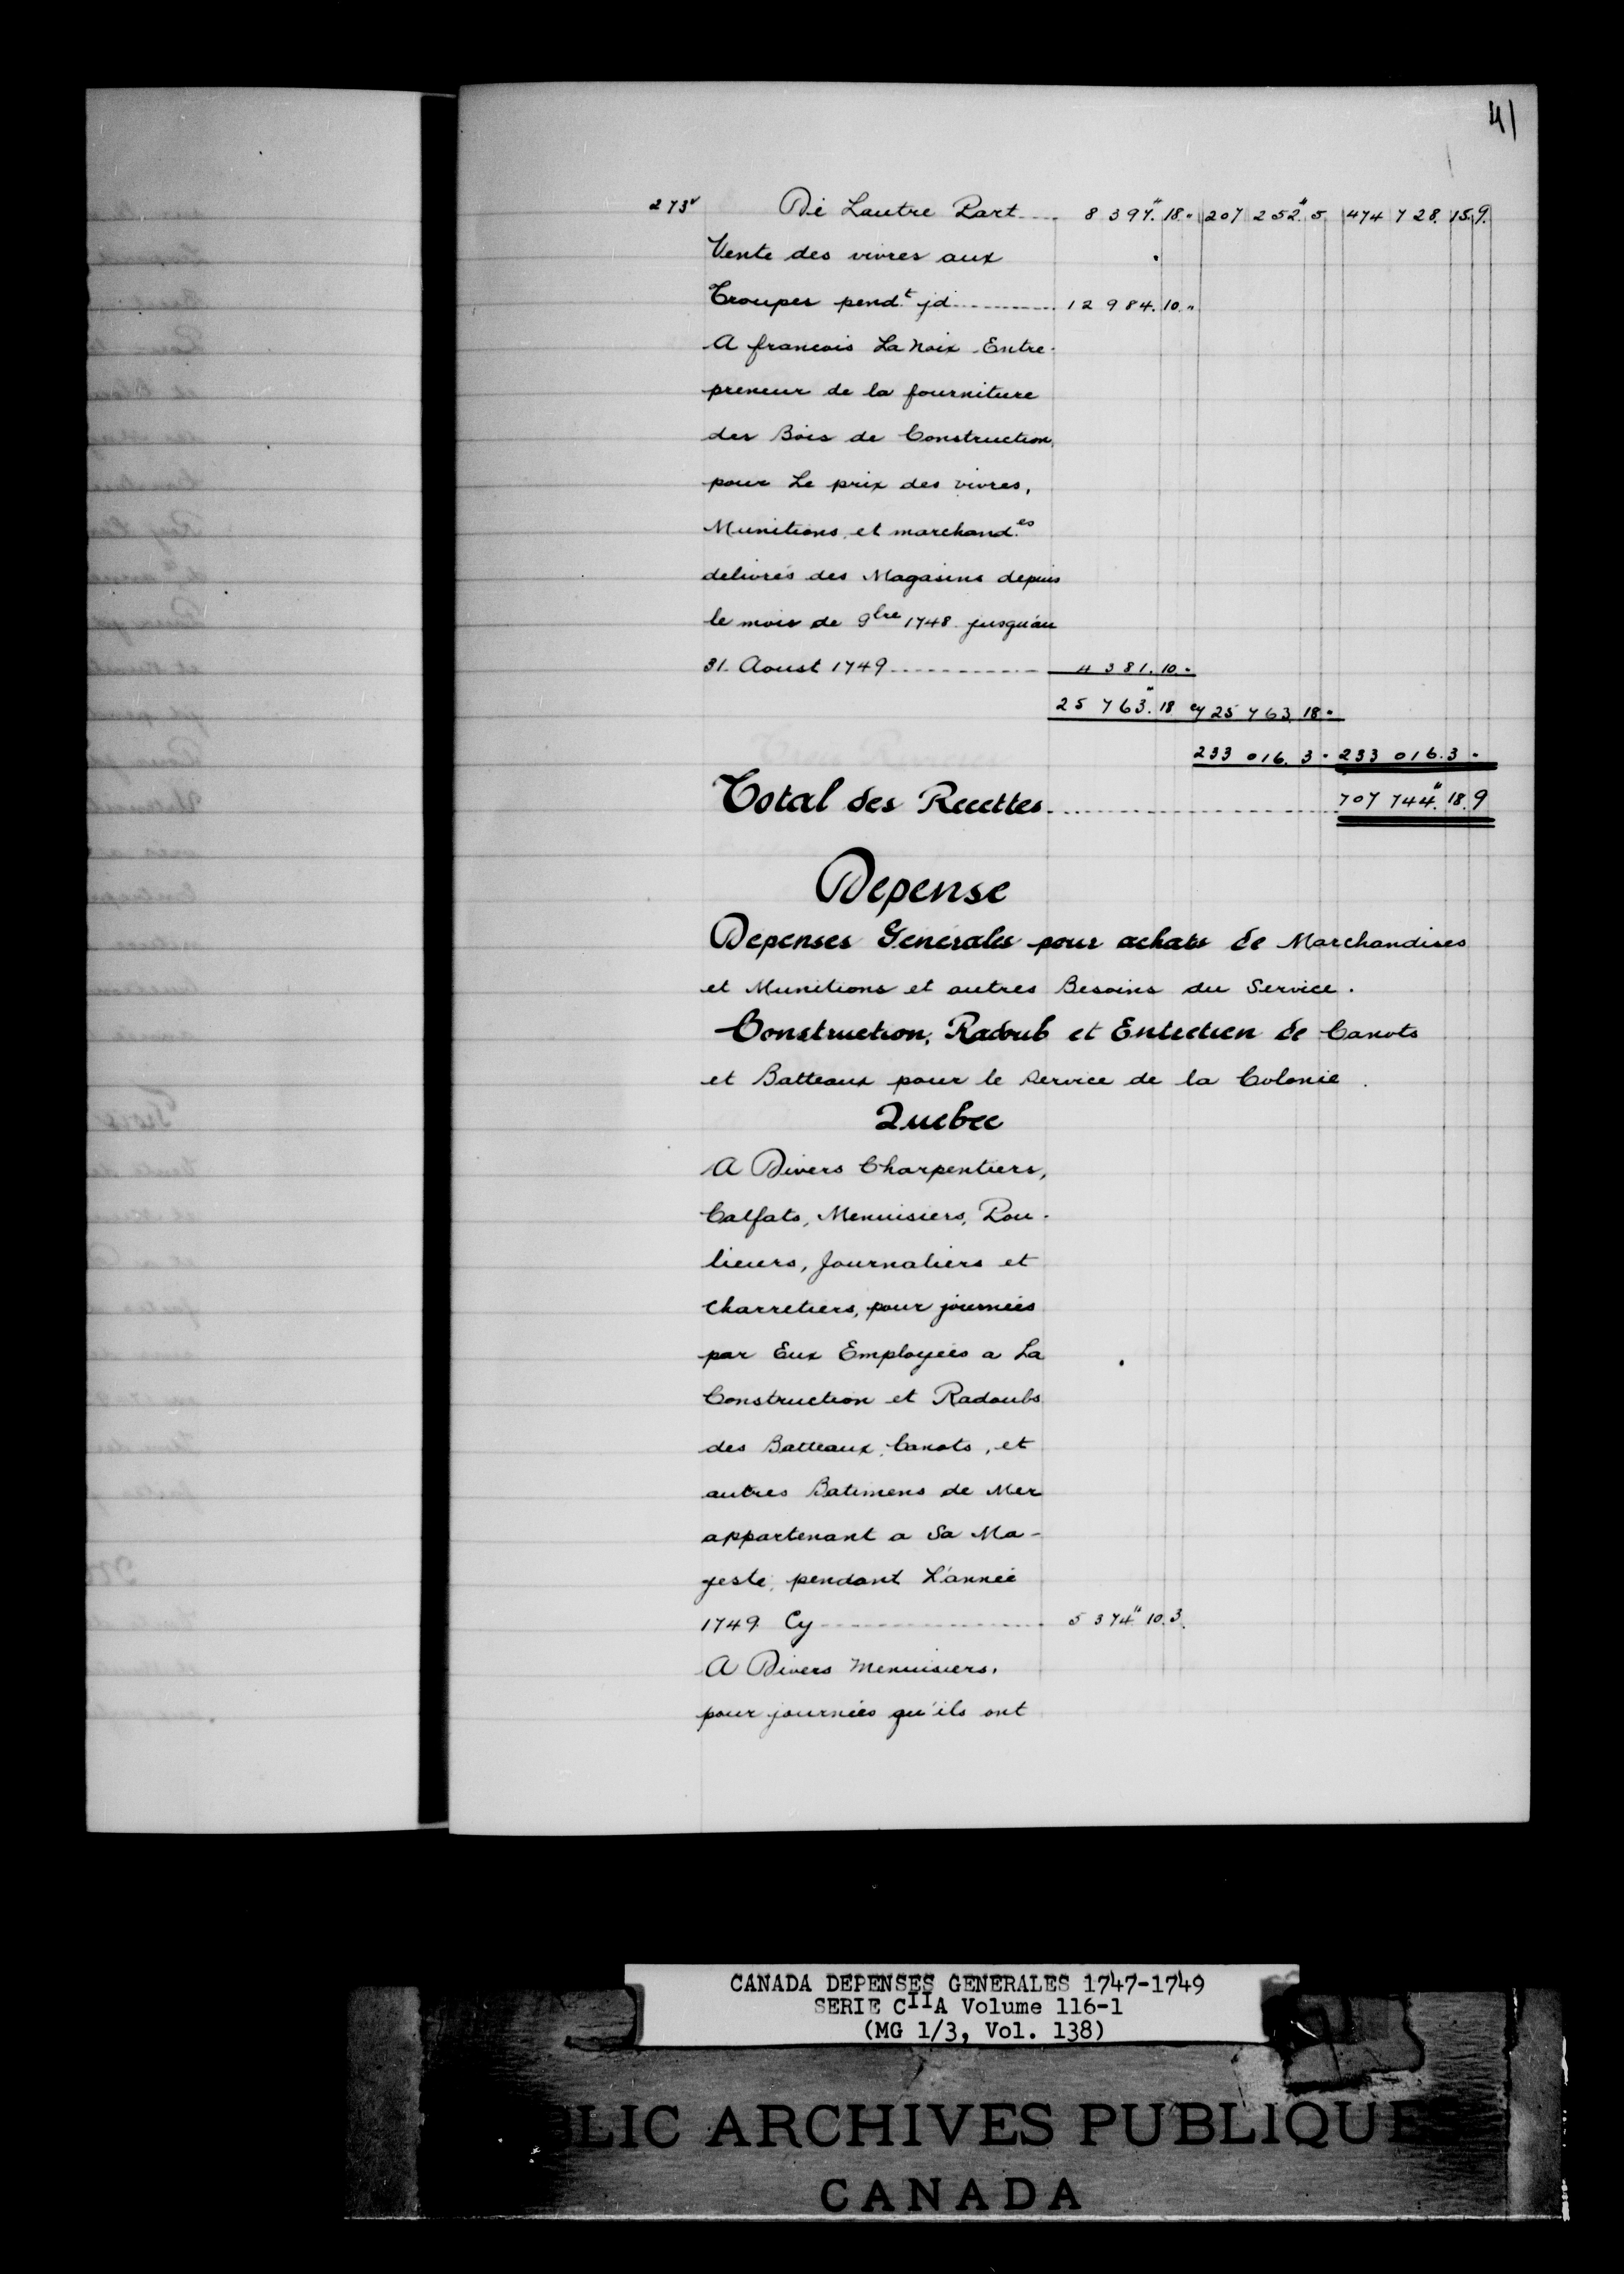 41
273v De Lautre Part.... 8 397." 18. " 207 252." 5 474 728. 15. 9.
Vente des vivres aux
Troupes pend.t jd............ 12 984. 10. "
A francois La Noix Entre-
preneur de la fourniture
des Bois de Construction,
pour Le prix des vivres,
Munitions, et marchand.es
delivrés des Magasins depuis
le mois de 9bre 1748 jusqu'au
31. Aoust 1749............ 4 381. 10. "
25 763." 18 cy 25 763. 18 "
233 016. 3 " 233 016. 3 "
Total des Recettes............ 707 744." 18. 9
Depense
Depenses Generales pour achats de Marchandises
et Munitions et autres Besoins du Service.
Construction, Radoub et Entretien de Canots
et Batteaux pour le service de la Colonie.
Quebec
A Divers Charpentiers,
Calfats, Menuisiers, Pou-
lieurs, Journaliers et
Charretiers, pour journées
par Eux Employées a La
Construction et Radoubs
des Batteaux, Canots, et
autres Batimens de Mer
appartenant a Sa Ma-
jesté, pendant L'année
1749. Cy............ 5 374." 10. 3.
A Divers Menuisiers,
pour journées qu'ils ont
CANADA DEPENSES GENERALES 1747-1749
SERIE CIIA Volume 116-1
(MG 1/3, Vol. 138)
LIC ARCHIVES PUBLIQUE
CANADA